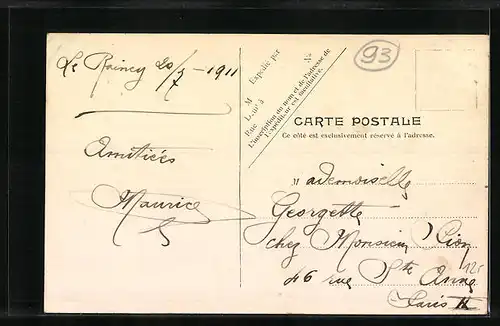 Le Raincy 20/7 - 1911
Amitiés
Maurice
Expédié par
M
Rue
No
L'inscription du nom et de l'adresse de
l'Expéditeur est facultative.
93
CARTE POSTALE
Ce côté est exclusivement réservé à l'adresse.
Mademoiselle
Georgette
chez Monsieur
46 rue Ste Anne
Paris